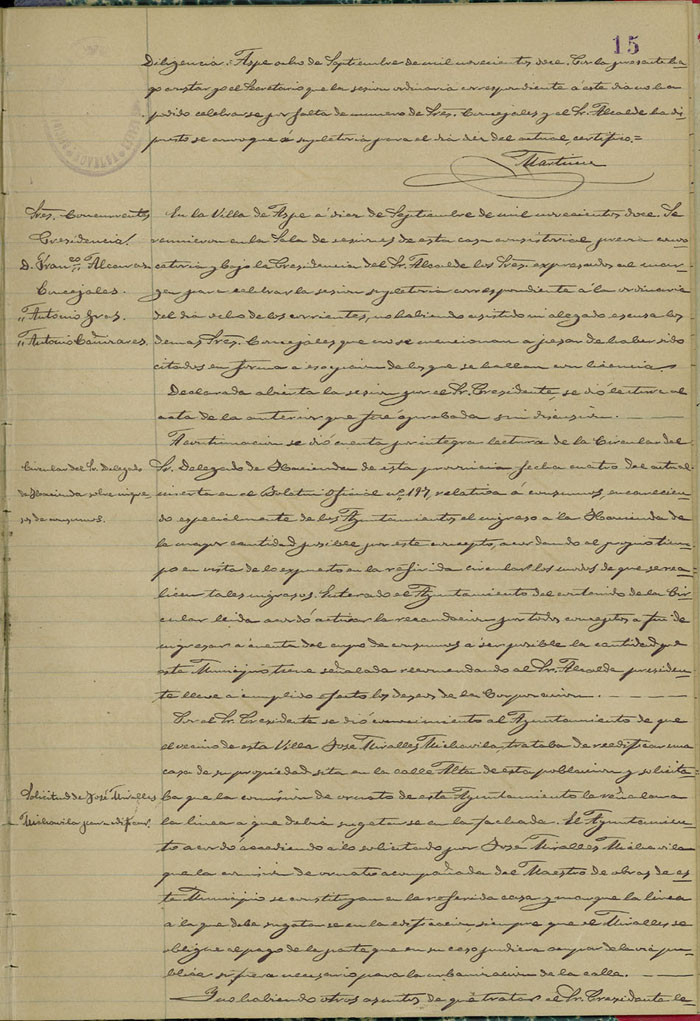 15
Diligencia: Aspe ocho de Septiembre de mil novecientos doce. Por la presente ha-
go constar yo el Secretario que la sesion ordinaria correspondiente á este dia no ha
podido celebrarse por falta de numero de Sres. Concejales y el Sr. Alcalde ha dis-
puesto se convoque á supletoria para el dia diez del actual, certifico.=
Martinez
Sres. Concurrentes
Presidencia.
D. Franco. Alcaraz
Concejales.
" Antonio
" Antonio Cañizares.
En la Villa de Aspe á diez de Septiembre de mil novecientos doce. Se
reunieron en la Sala de sesiones de esta casa consistorial previa convo-
catoria y bajo la Presidencia del Sr. Alcalde los Sres. expresados al mar-
gen para celebrar la sesion supletoria correspondiente á la ordinaria
del dia ocho de los corrientes, no habiendo asistido ni alegado escusa los
demas Sres. Concejales que no se mencionan a pesar de haber sido
citados en forma a escepcion de los que se hallan con licencia
Declarada abierta la sesion por el Sr. Presidente, se dió lectura al
acta de la anterior que fué aprobada sin discusion.
Circular del Sr. Delegado
de Hacienda sobre ingre-
sos de consumos.
A continuacion se dió cuenta por integra lectura de la Circular del
Sr. Delegado de Hacienda de esta provincia fecha cuatro del actual
inserta en el Boletin Oficial nº 197, relativa á consumos, encarecien-
do especialmente de los Ayuntamientos el ingreso a la Hacienda de
la mayor cantidad posible por este concepto, acordando al propio tiem-
po en vista de lo expuesto en la referida circular los modos de que se rea-
licen tales ingresos. Enterado el Ayuntamiento del contenido de la Cir-
cular leida acordó activar la recaudacion por todos conceptos a fin de
ingresar á cuenta del cupo de consumos a ser posible la cantidad que
este Municipio tiene señalada recomendando al Sr. Alcalde presiden-
te lleve a cumplido efecto los deseos de la Corporacion.
Solicitud de José Miralles
Michavila para edificar.
Por el Sr. Presidente se dió conocimiento al Ayuntamiento de que
el vecino de esta Villa José Miralles Michavila, trataba de reedificar una
casa de su propiedad sita en la calle Alta de esta poblacion y solicita-
ba que la comision de ornato de este Ayuntamiento le señalara
la linea a que debia sugetarse en la fachada. El Ayuntamien-
to acordó accediendo a lo solicitado por José Miralles Michavila
que la comision de ornato acompañada del Maestro de obras de es-
te Municipio se constituya en la referida casa y marque la linea
a la que debe sugetarse en la edificacion, siempre que el Miralles se
obligue al pago de la parte que en su caso pudiera ocupar de la via pu-
blica si fuera necesario para la urbanizacion de la calle.
Y no habiendo otros asuntos de que tratar el Sr. Presidente le-